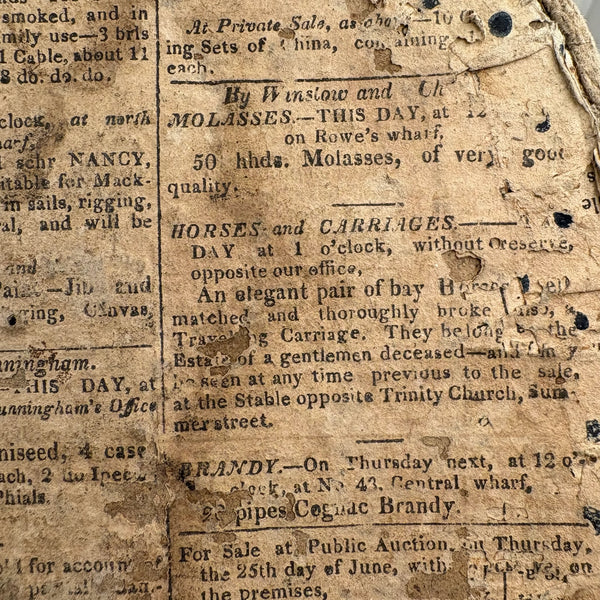 smoked, and in
mily use—3 brls
1 Cable, about 11
8 do. do. do.
clock, at north
schr NANCY,
itable for Mack-
in sails, rigging,
al, and will be
and
Paint—Jib and
ging, Canvas,
nningham.
THIS DAY, at
unningham's Office
niseed, 4 case
ach, 2 do Ipec
Phials.
for account of
At Private Sale, as above—10
ing Sets of China, containing
each.
By Winslow and Ch
MOLASSES.—THIS DAY, at 12
on Rowe's wharf,
50 hhds. Molasses, of very good
quality.
HORSES and CARRIAGES.—
DAY at 1 o'clock, without reserve,
opposite our office,
An elegant pair of bay
matched and thoroughly broke also, a
Travelling Carriage. They belong to the
Estate of a gentlemen deceased—and may
be seen at any time previous to the sale,
at the Stable opposite Trinity Church, Sum-
merstreet.
BRANDY.—On Thursday next, at 12 o'-
clock, at No 43, Central wharf,
pipes Cognac Brandy.
For Sale at Public Auction, on Thursday,
the 25th day of June, with on
the premises,